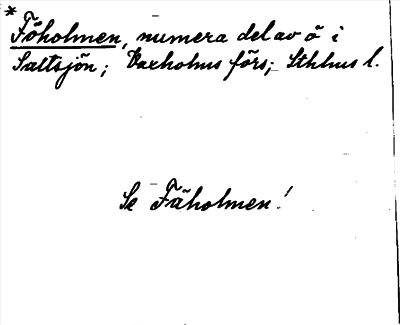 *
Föholmen, numera del av ö i
Saltsjön; Vaxholms förs; Sthlms l.
Se Fåholmen!